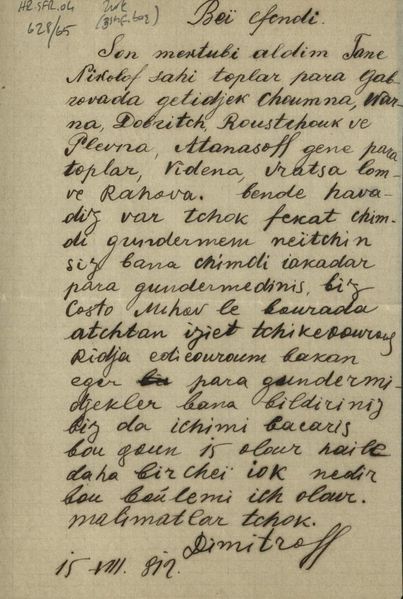 HR.SFR.04
628/65
Beï efendi.
Son mektubi aldim Tane
Nikolof sahi toplar para Gab-
rovada getidjek Choumna, War-
na, Dobritch, Roustchouk ve
Plevna, Atanasoff gene para
toplar, Videna, Vratsa lom-
ve Rahova. bende hava-
diz var tchok fekat chim-
di gundermem neïtchin
siz bana chimdi iakadar
para gundermedinis, biz
Costo Mihov le bourada
atchtan iziet tchikeiouroug
Ridja edieiouroum bakan
eger para gundermi-
djekler bana bildiriniz
biz da ichimi bacaris
bou goun 15 olour
daha bir cheï iok nedir
bou boülemi ich olour.
malimatlar tchok.
Dimitroff
15 VIII.